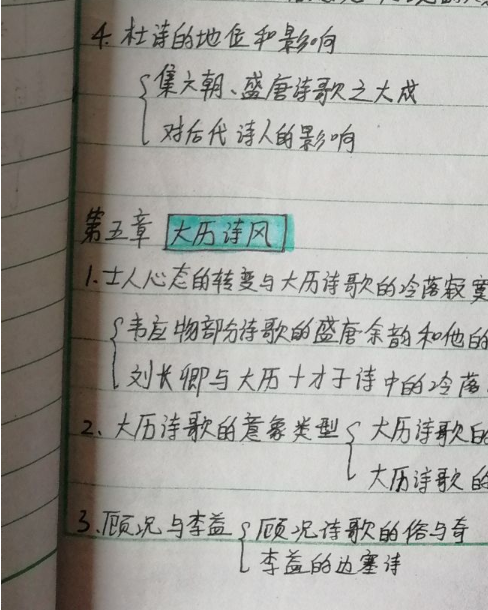 4. 杜诗的地位和影响
集六朝、盛唐诗歌之大成
对后代诗人的影响
第五章 大历诗风
1. 士人心态的转变与大历诗歌的冷落寂寞
韦应物部分诗歌的盛唐余韵和他的
刘长卿与大历十才子诗中的冷落
2. 大历诗歌的意象类型 大历诗歌的
大历诗歌的
3. 顾况与李益 顾况诗歌的俗与奇
李益的边塞诗